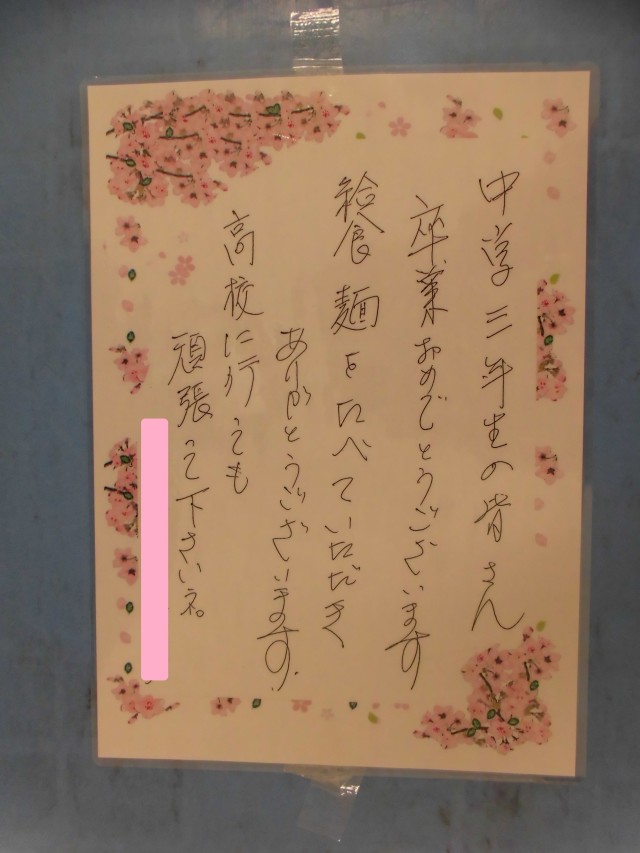 中学三年生の皆さん
卒業おめでとうございます
給食麺をたべていただき
ありがとうございます。
高校に行っても
頑張って下さいネ。